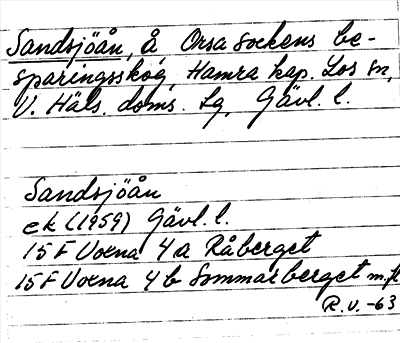 Sandsjöån, å Orsa sockens be-
sparingsskog, Hamra kap. Los sn,
V. Häls. doms. Lg, Gävl. l.
Sandsjöån
ek (1959) Gävl. l.
15 F Voxna 4 a Råberget
15 F Voxna 4 b Sommarberget m.fl
R.V.-63